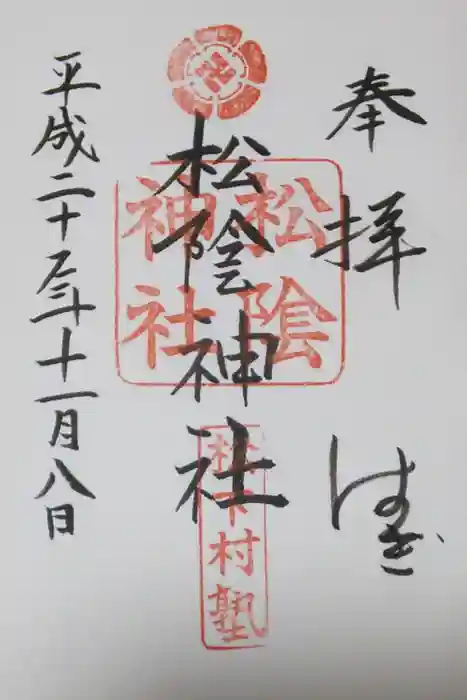 奉拝
はぎ
松陰神社
松陰神社
松下村塾
平成二十五年十一月八日